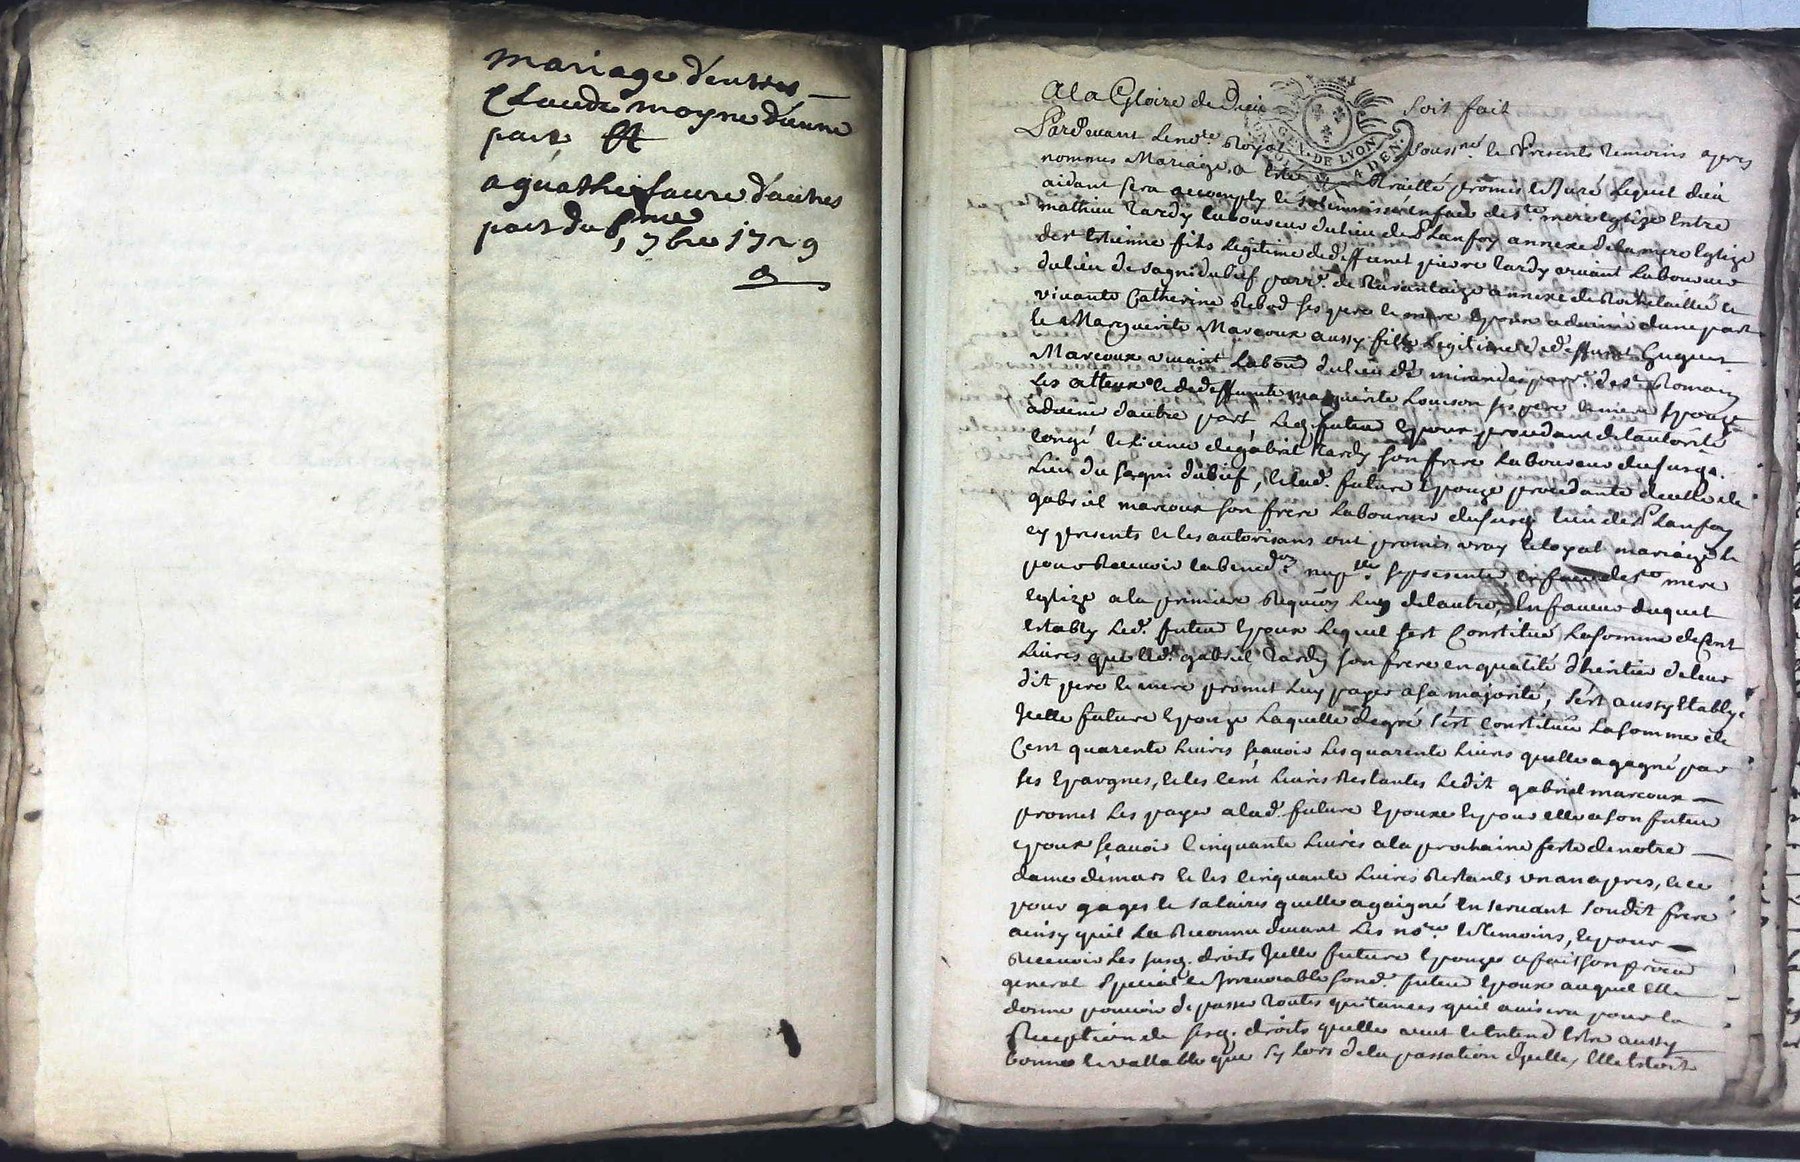 mariage d'entre
Claude moyne d'une
part Et
aguathe faure d'autre
part du 6me 7bre 1729
A la Gloire de Dieu soit fait
G. DE LYON
4 DEN.
Pardevant le nore Royal soussné et Presents temoins apres
nommes Mariage a esté traitté promis et Juré lequel dieu
aidant sera accomply et solemnisé en face de ste mere Eglize Entre
mathieu Tardy laboureur du lieu de annexe de la mere Eglize
de st Estienne fils legitime de deffunct pierre Tardy vivant laboureur
du lieu de parr. de annexe de Rochetaillée et
vivante Catherine ses pere et mere Epoux advenir d'une part
et Marguerite Marcoux aussy fille Legitime de deffunt Hugues
Marcoux vivant Labour du lieu de parr. de st Romain
Les atteux et de deffunte marguerite Louison ses pere et mere Epouze
advenir d'autre part, Led. futur Epoux procedant de l'autorité
congé et licence de gabriel Tardy son frere Laboureur du susd.
Lieu du , et lad. future Epouze procedante de celle de
gabriel marcoux son frere Laboureur du susd lieu de
cy presents et les autorisans ont promis vray et loyal mariage et
pour Recevoir la bened.on nup.lle se presenter en face de ste mere
Eglize a la premiere Requ.on Luy de l'autre, En faveur duquel
Estably Led. futur Epoux Lequel s'est Constitué La somme de Cent
Livres que led. gabriel Tardy son frere en qualité d'heritier de leur
dit pere et mere promet Luy payer a sa majorité, s'est aussy Establye
Icelle future Epouze Laquelle de gré s'est Constituée La somme de
Cent quarente Livres scavoir Les quarente Livres quelle a gagné par
ses Epargnes, et les Cent Livres Restantes Ledit gabriel marcoux
promet Les payer a lad. future Epouze et pour elle a son futur
epoux scavoir Cinquante Livres a la prochaine feste de notre
dame de mars et les Cinquante Livres Restants un an apres, et ce
pour gages et salaires quelle a gaigné En servant Sondit frere
ainsy qu'il La Reconnu devant Les no.re et temoins, et pour
Recevoir Les susd. droits Icelle future Epouze a fait son procur
general Special et Irrevocable sond. futur Epoux auquel Elle
donne pouvoir de passer Toutes quittances qu'il avisera pour la
Reception de sesd. droits quelle veut et entend Estre aussy
bonnes et vallables que sy Lors de la passation dycelles, Elle Estoit